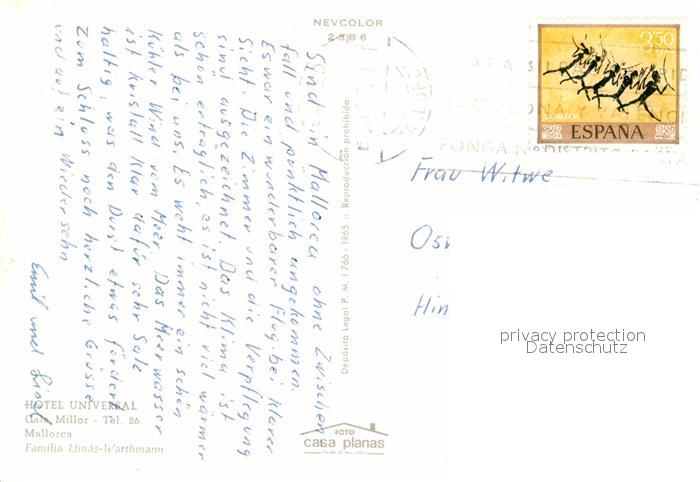 NEVCOLOR
2386
3'50
CORREOS
ESPAÑA
PONGA Nº DISTRITO POSTAL
Sind in Mallorca ohne Zwischen
fall und pünktlich angekommen.
Es war ein wunderbarer Flug bei klarer
Sicht. Die Zimmer und die Verpflegung
sind ausgezeichnet. Das Klima ist
schön erträglich, es ist nicht viel wärmer
als bei uns. Es weht immer ein schön
kühler Wind vom Meer. Das Meerwasser
ist kristall klar dafür sehr Salz
haltig, was den Durst etwas fördert
Zum Schluss noch herzliche Grüsse
und auf ein Wiedersehn
Emil und
Frau Witwe
Depósito Legal P. M. 1.766 - 1965 :: Reproducción prohibida
privacy protection
Datenschutz
HOTEL UNIVERSAL
Cala Millor - Tel. 26
Mallorca
Familia Llinás-Warthmann
FOTO
casa planas